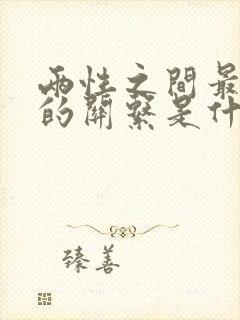 兩性之間最
的關繫是什
臻善